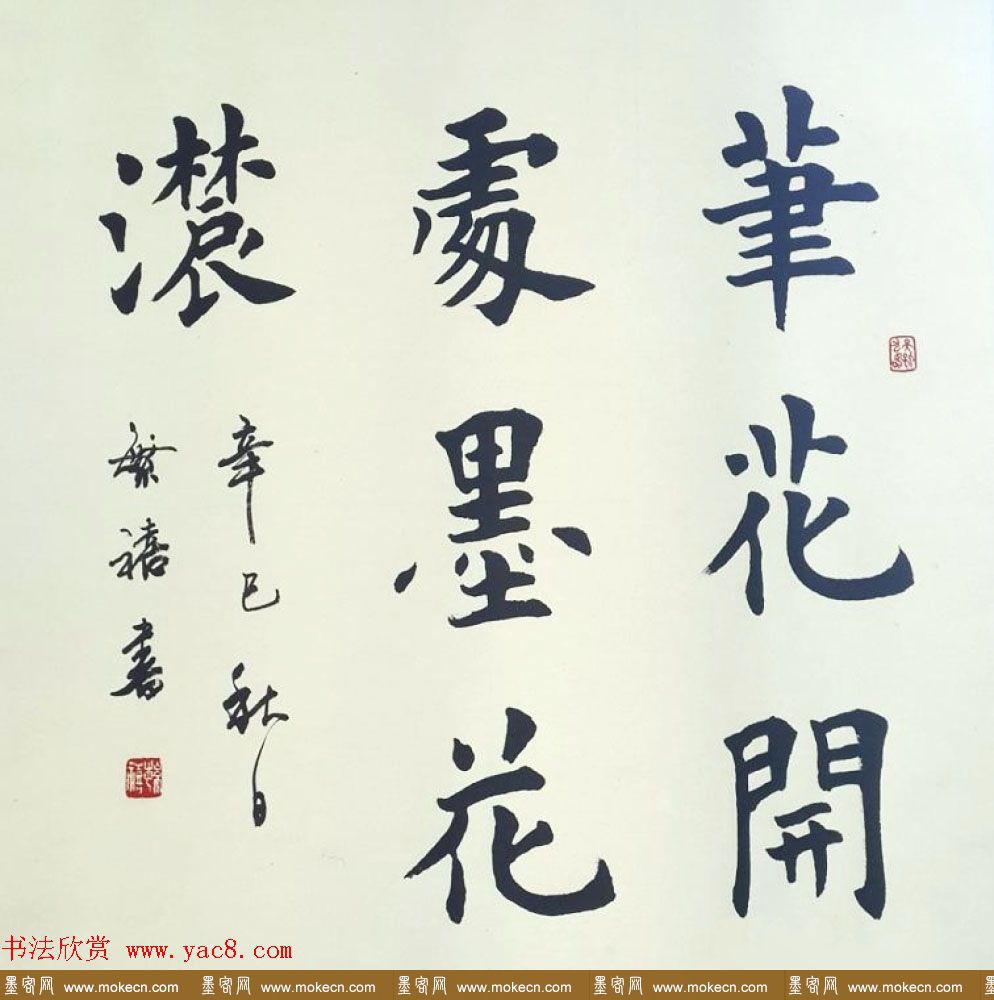 筆花開
處墨花
濃
辛巳秋日
繁禧書
书法欣赏 www.yac8.com
墨客网 www.mokecn.com 墨客网 www.mokecn.com 墨客网 www.mokecn.com 墨客网 www.mokecn.com